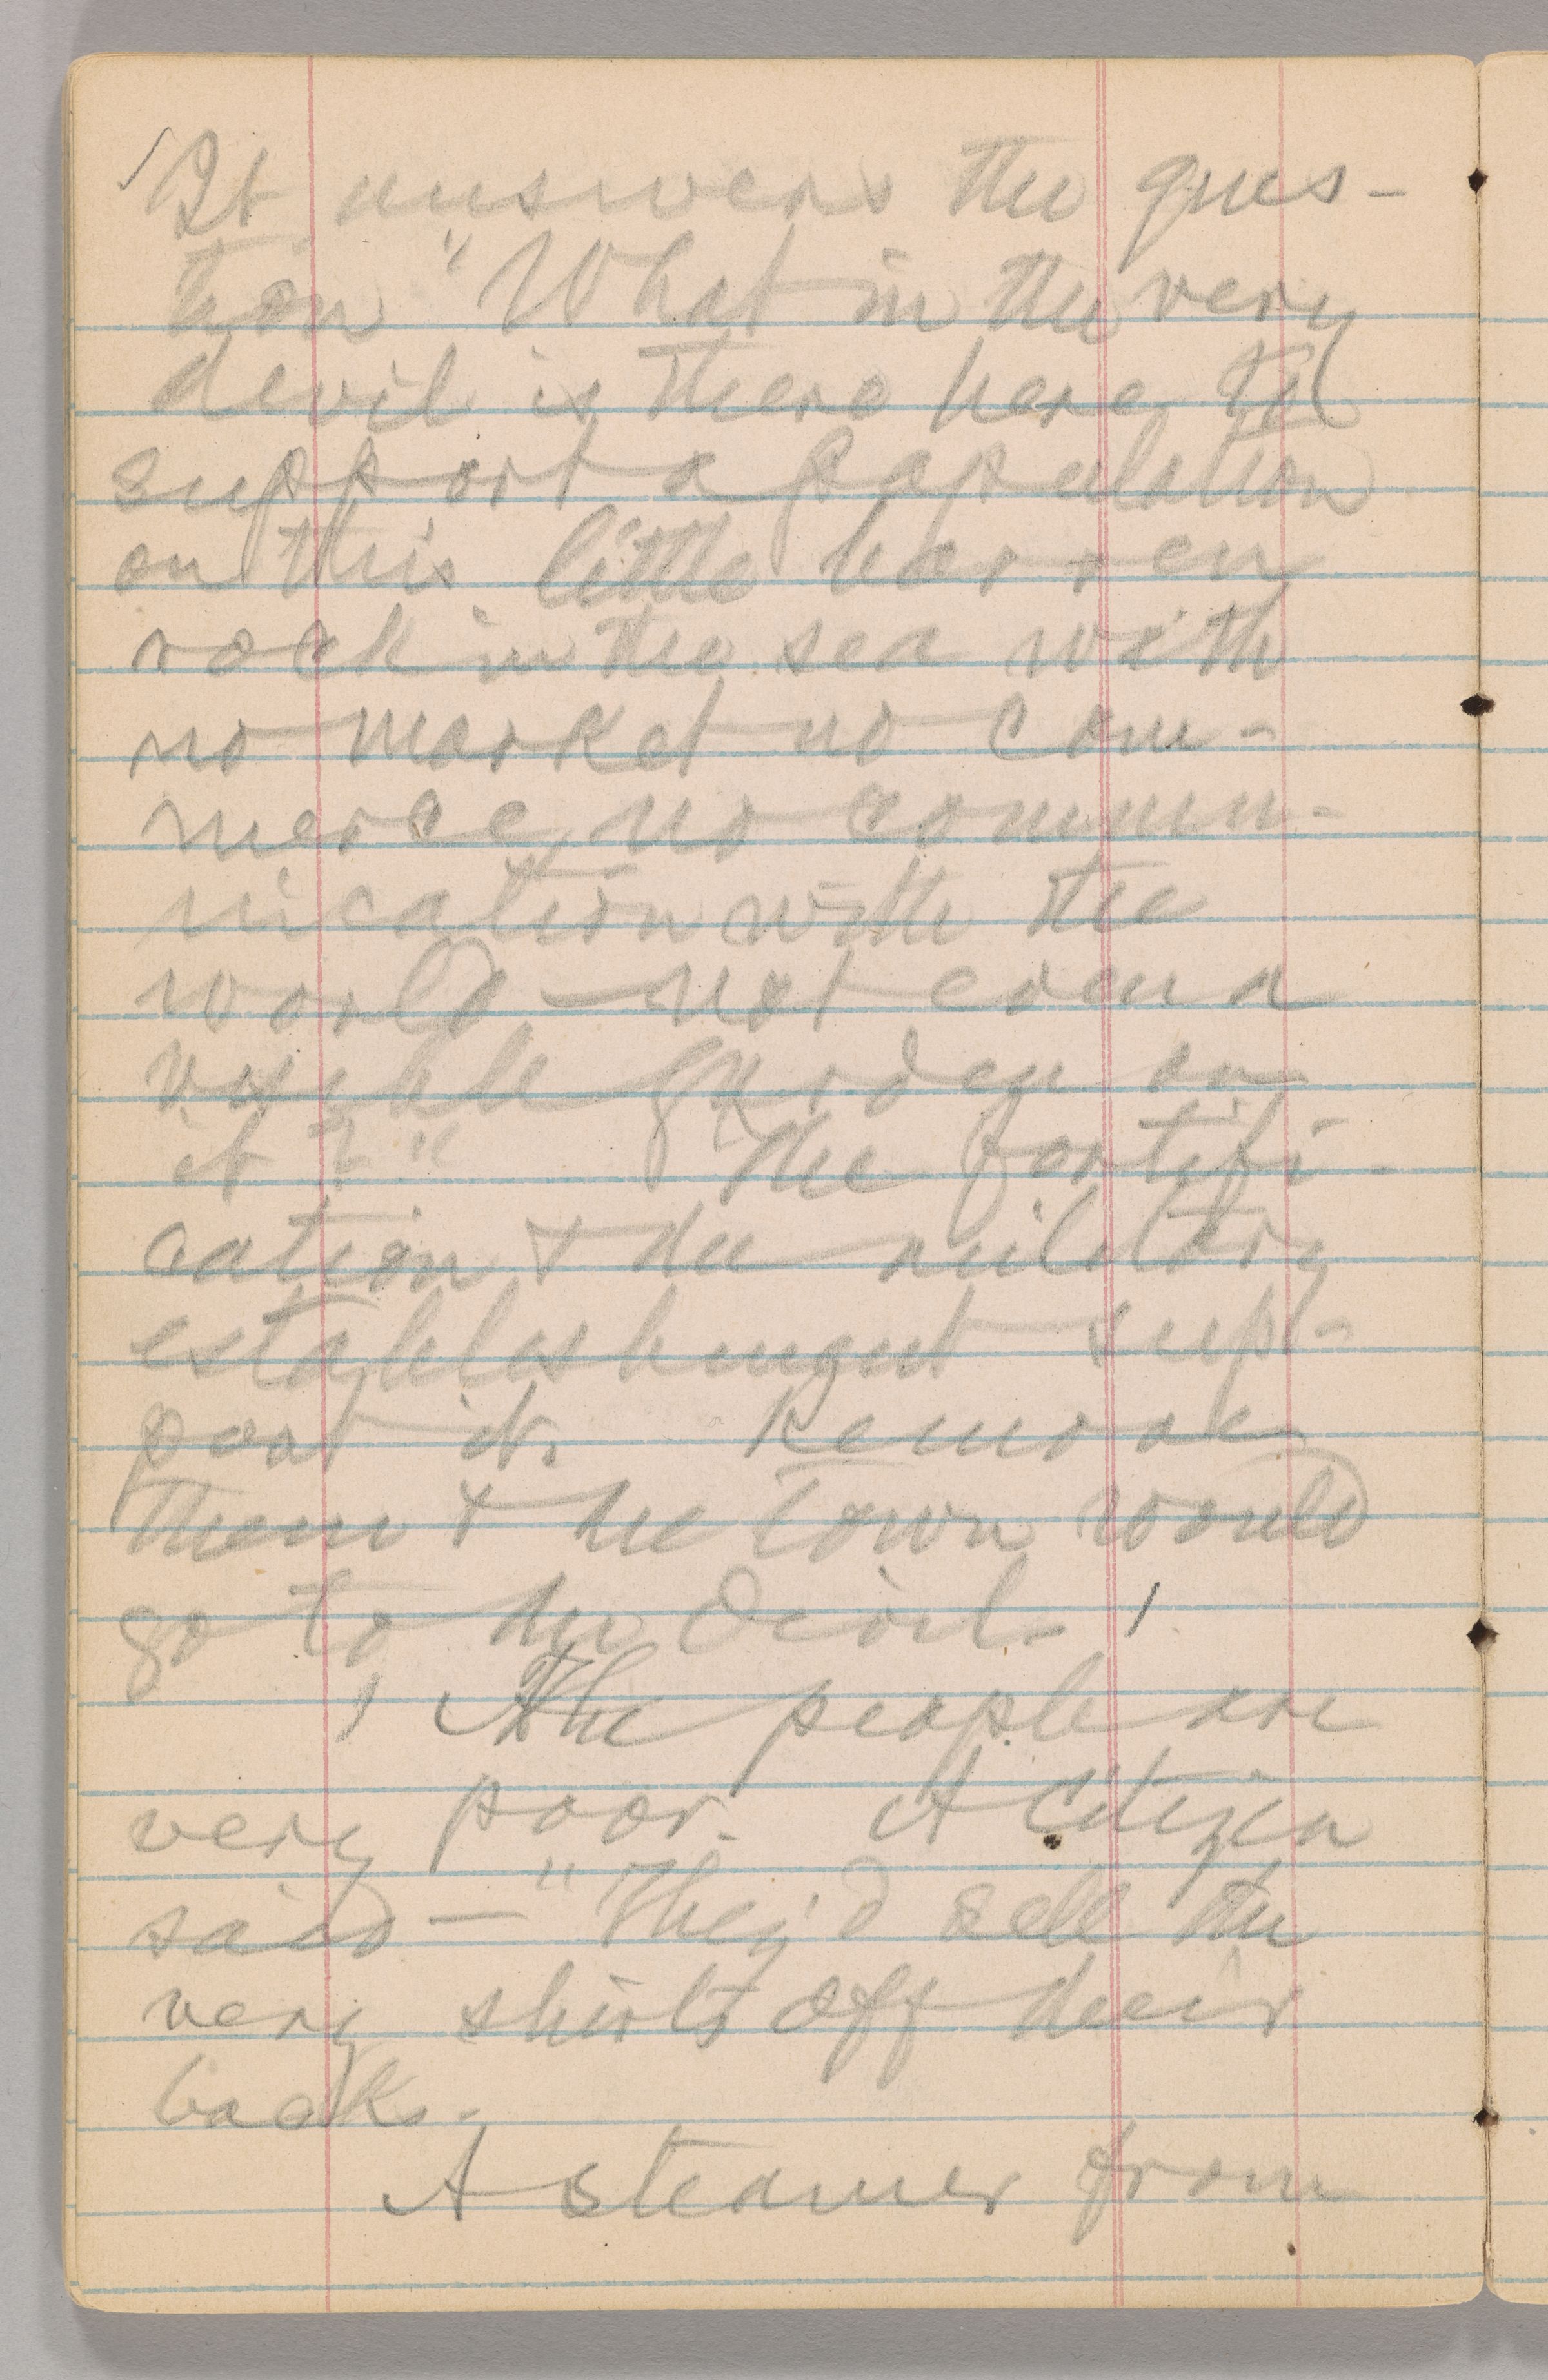 It answers the ques-
tion "What in the very
devil is there here to
support a population
on this little barren
rock in the sea with
no market no com-
merce, no commu-
nication with the
world – not even a
visible garden on
it?" The fortifi-
cation & the military
establishment sup-
port it. Remove
them & the town would
go to the devil.
The people are
very poor. A citizen
said — "They'd sell the
very shirts off their
backs.
A steamer from